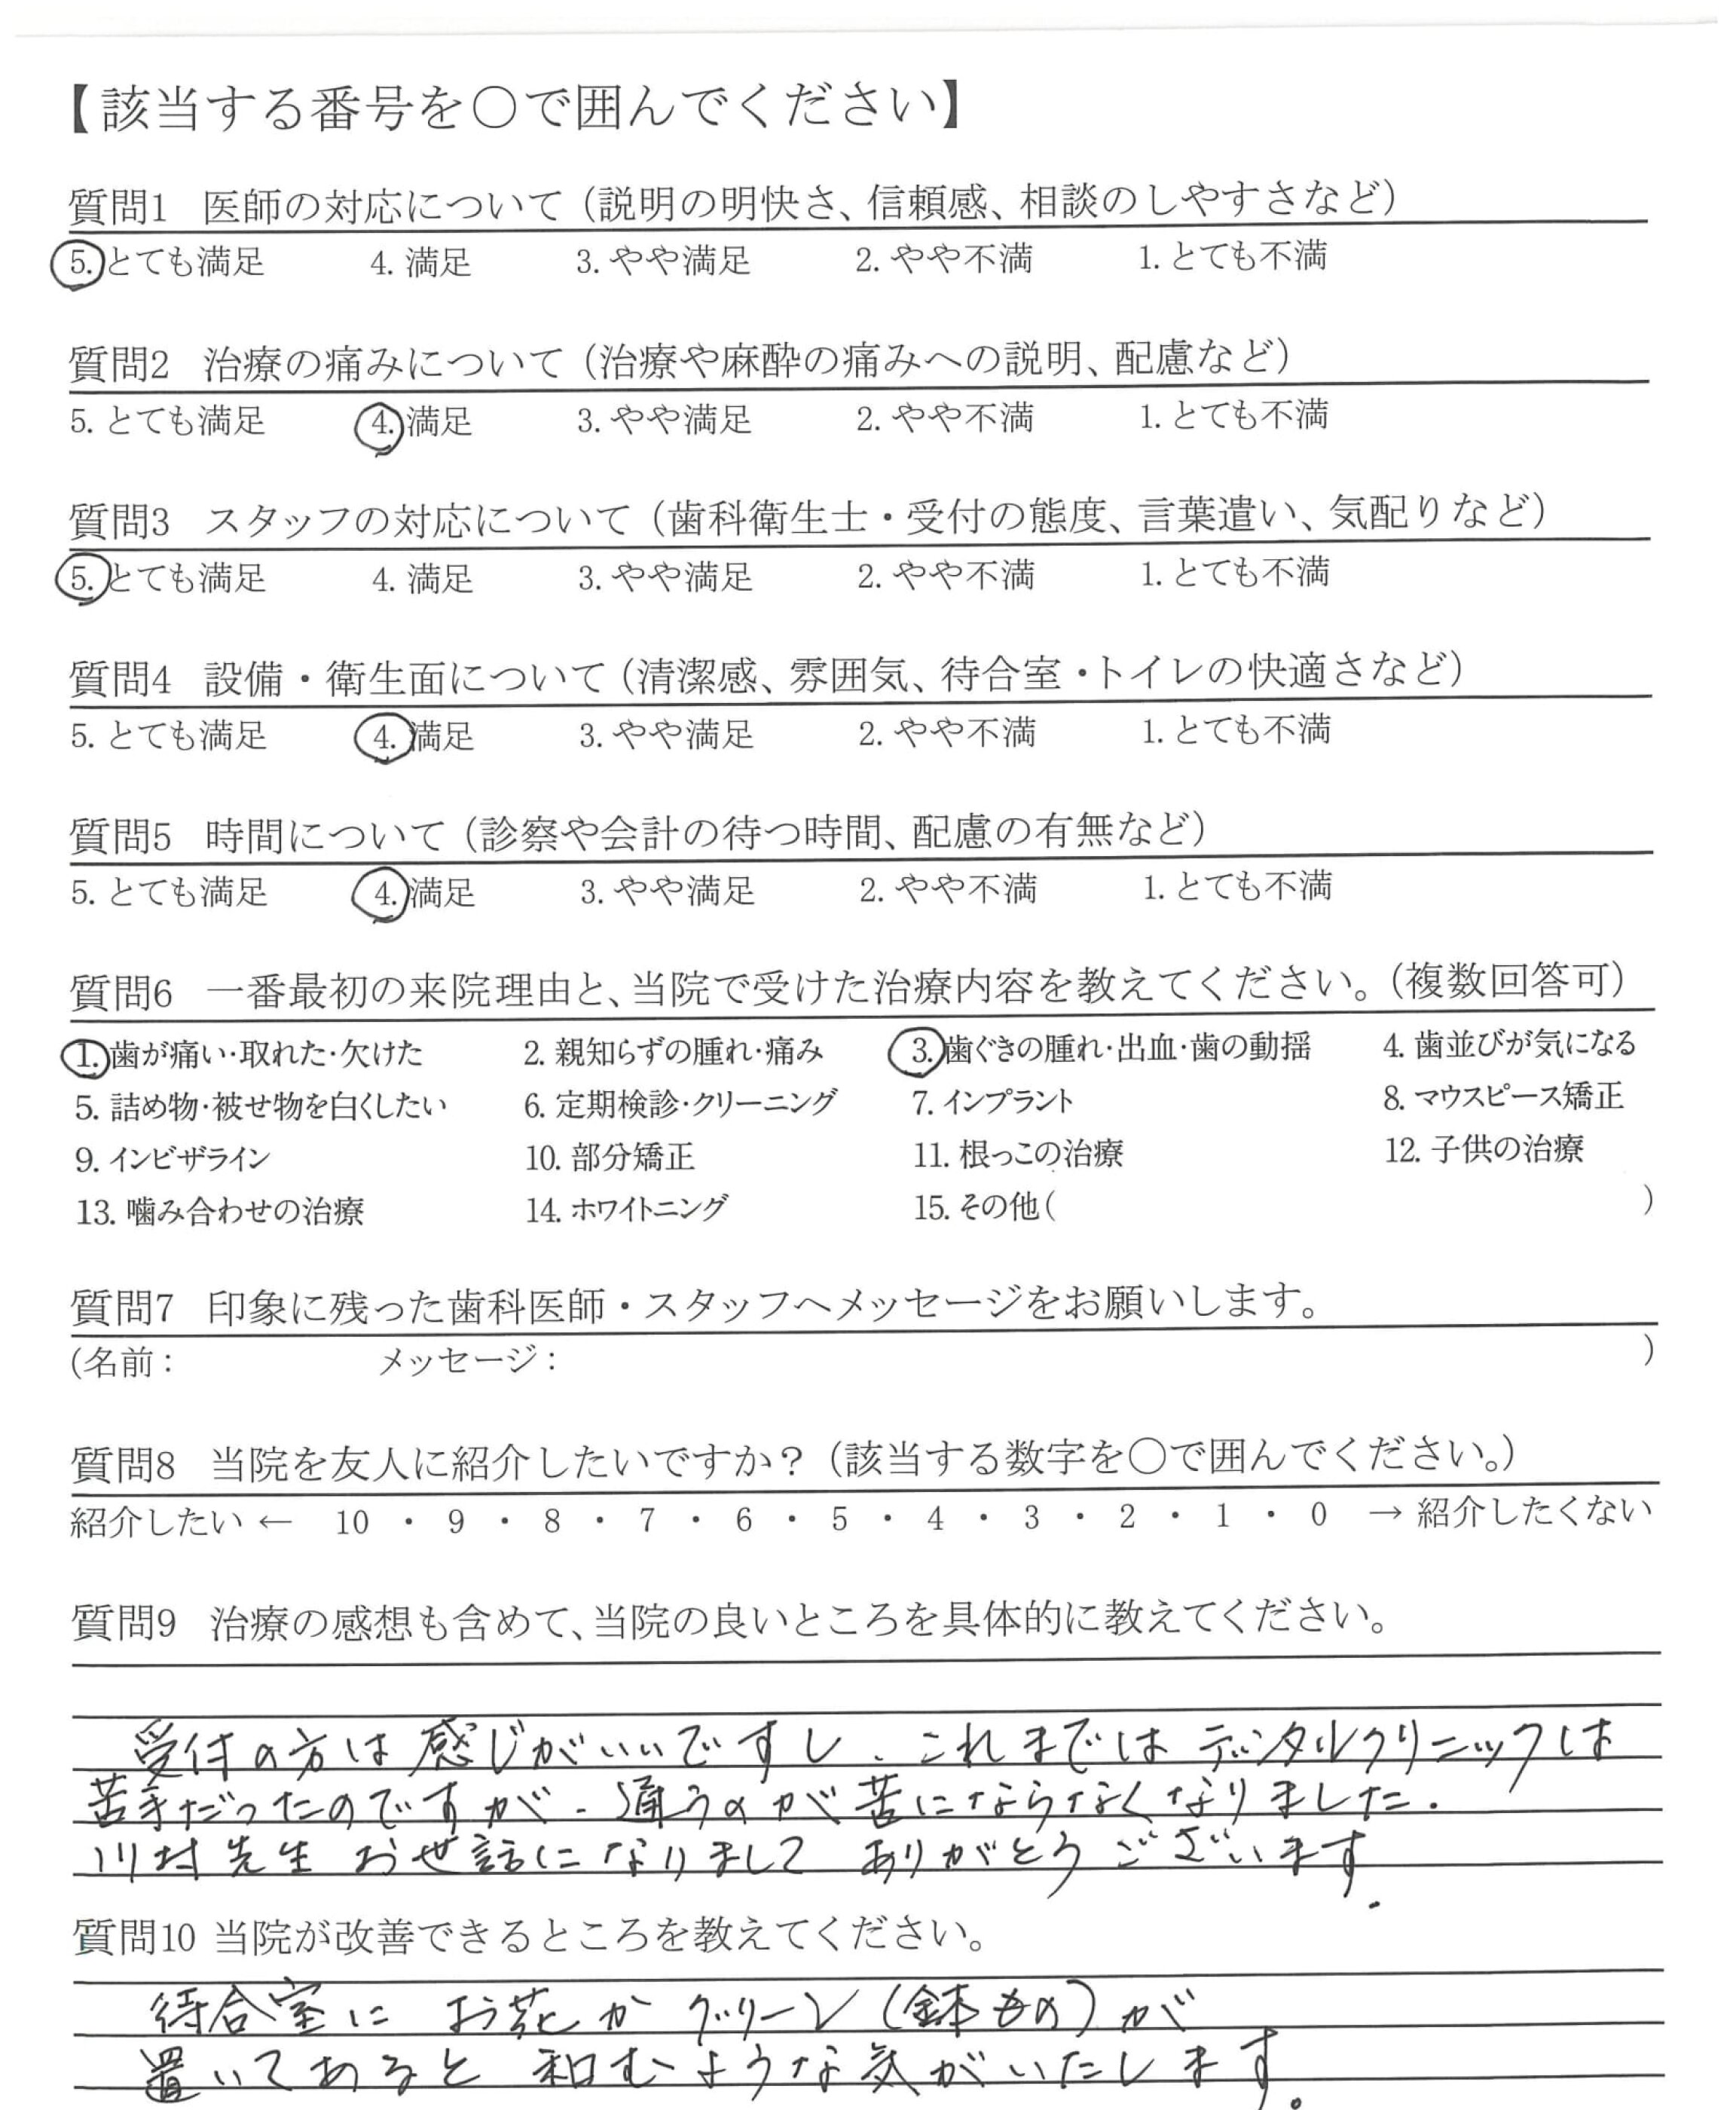 【該当する番号を○で囲んでください】
質問1 医師の対応について（説明の明快さ、信頼感、相談のしやすさなど）
5. とても満足 4. 満足 3. やや満足 2. やや不満 1. とても不満
質問2 治療の痛みについて（治療や麻酔の痛みへの説明、配慮など）
5. とても満足 4. 満足 3. やや満足 2. やや不満 1. とても不満
質問3 スタッフの対応について（歯科衛生士・受付の態度、言葉遣い、気配りなど）
5. とても満足 4. 満足 3. やや満足 2. やや不満 1. とても不満
質問4 設備・衛生面について（清潔感、雰囲気、待合室・トイレの快適さなど）
5. とても満足 4. 満足 3. やや満足 2. やや不満 1. とても不満
質問5 時間について（診察や会計の待つ時間、配慮の有無など）
5. とても満足 4. 満足 3. やや満足 2. やや不満 1. とても不満
質問6 一番最初の来院理由と、当院で受けた治療内容を教えてください。（複数回答可）
1. 歯が痛い・取れた・欠けた 2. 親知らずの腫れ・痛み 3. 歯ぐきの腫れ・出血・歯の動揺 4. 歯並びが気になる
5. 詰め物・被せ物を白くしたい 6. 定期検診・クリーニング 7. インプラント 8. マウスピース矯正
9. インビザライン 10. 部分矯正 11. 根っこの治療 12. 子供の治療
13. 噛み合わせの治療 14. ホワイトニング 15. その他（ ）
質問7 印象に残った歯科医師・スタッフへメッセージをお願いします。
（名前： メッセージ： ）
質問8 当院を友人に紹介したいですか？（該当する数字を○で囲んでください。）
紹介したい ← 10 ・ 9 ・ 8 ・ 7 ・ 6 ・ 5 ・ 4 ・ 3 ・ 2 ・ 1 ・ 0 → 紹介したくない
質問9 治療の感想も含めて、当院の良いところを具体的に教えてください。
受付の方は感じがいいですし、これまではデンタルクリニックは
苦手だったのですが、通うのが苦にならなくなりました。
川村先生 お世話になりまして ありがとうございます。
質問10 当院が改善できるところを教えてください。
待合室に お花か グリーン（鉢もの）が
置いてあると 和むような気がいたします。